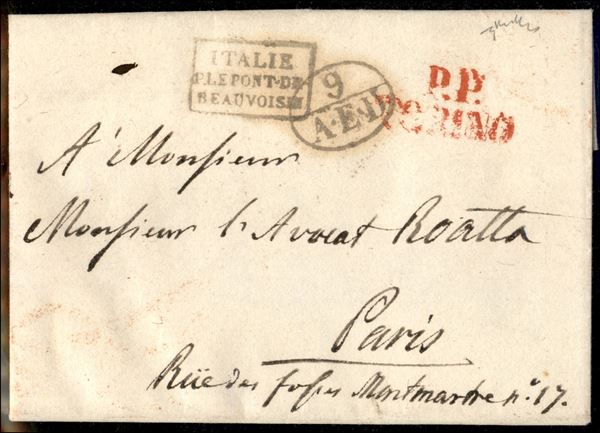 ITALIE
P. LE PONT-DE
BEAUVOISIN
9
A·E·D
P.P.
TORINO
A' Monsieur
Monsieur l'Avocat Roatta
Paris
Rüe des fossés Montmartre n.° 17.